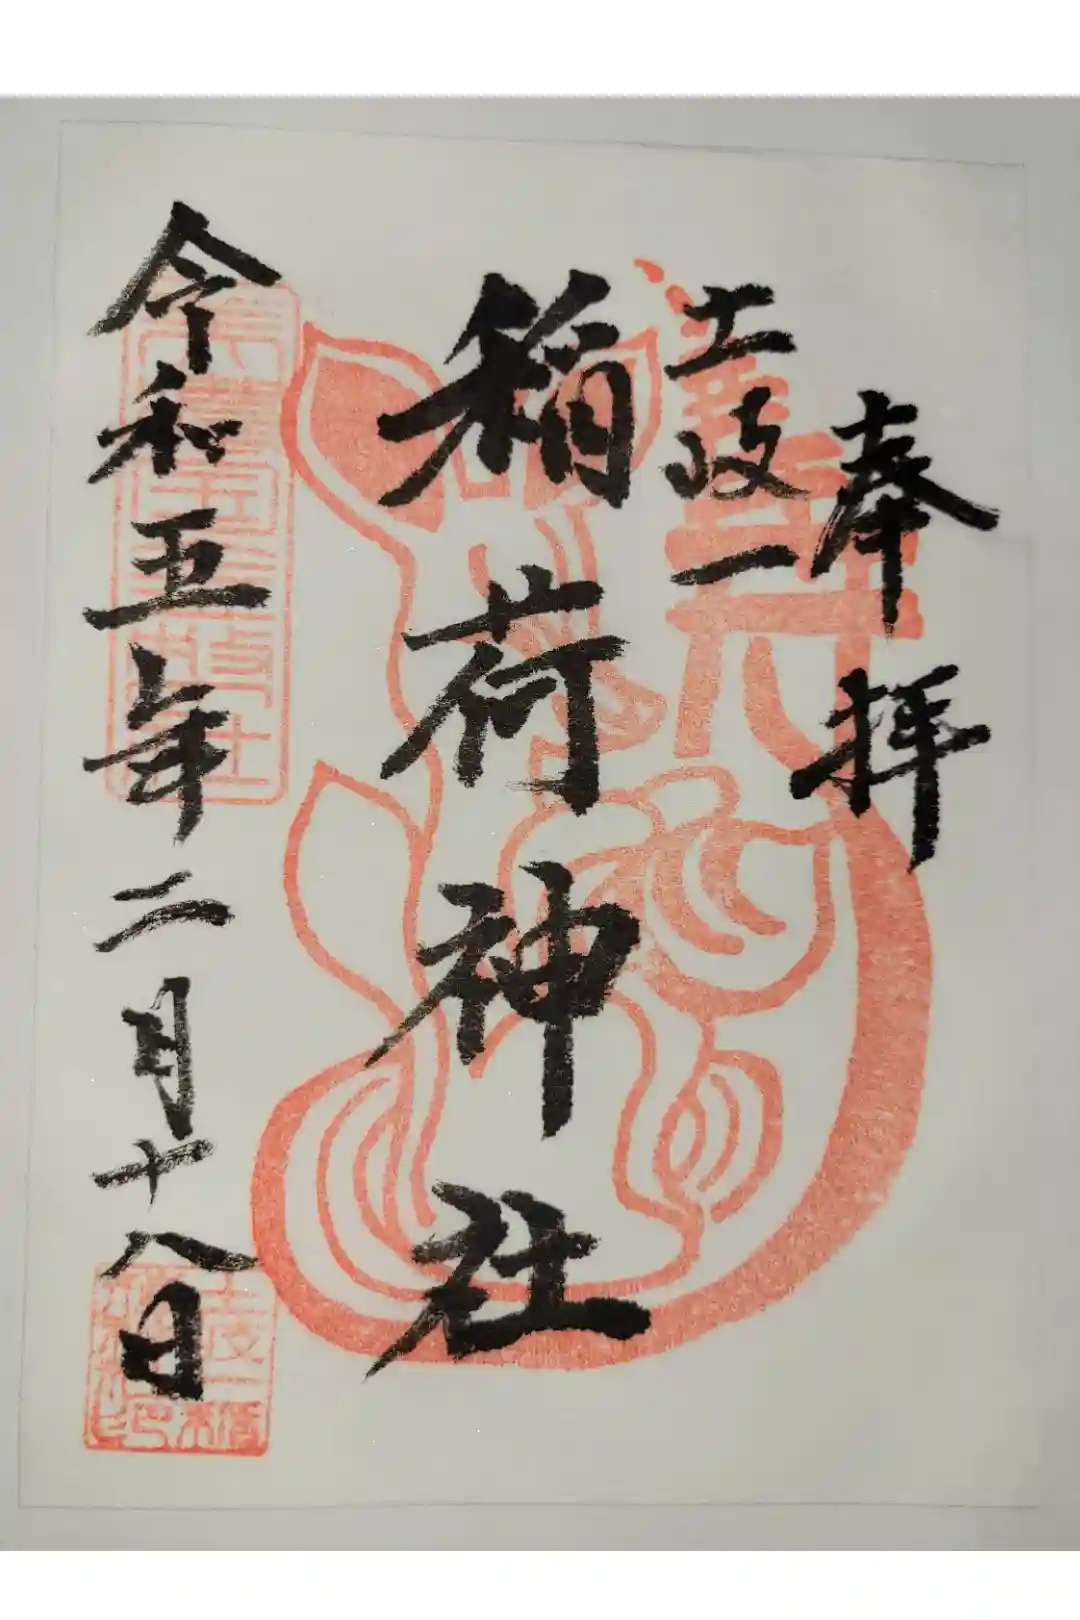 奉拝
土岐一
稲荷神社
令和五年二月十八日